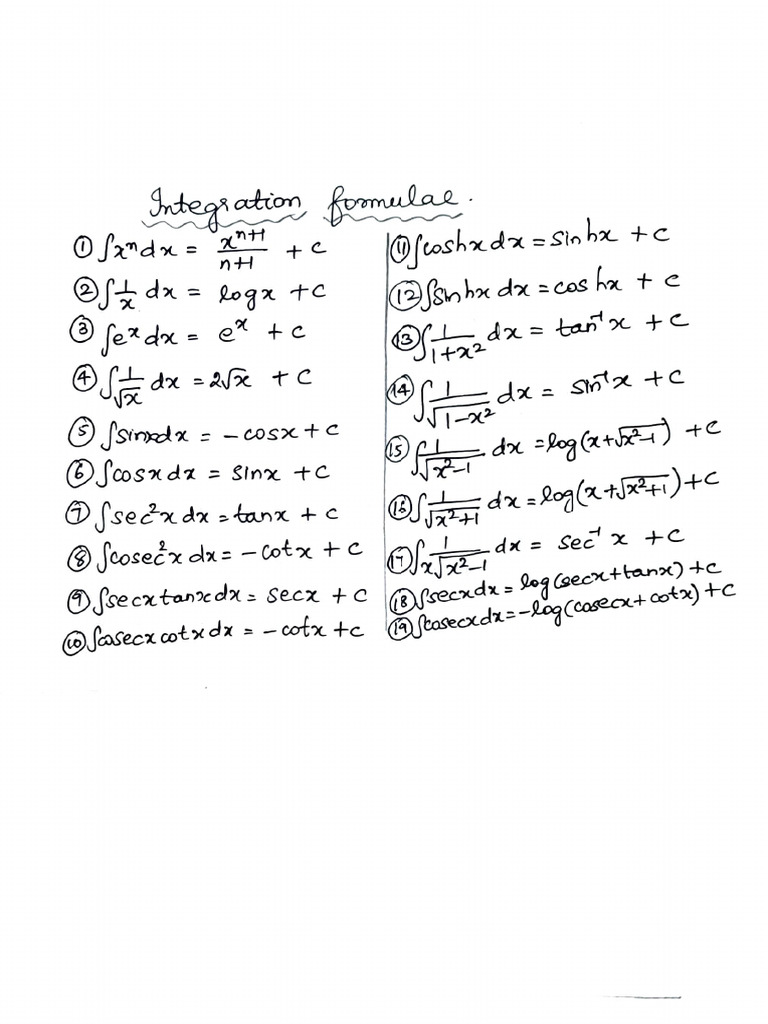 Integration formulae.
① ∫xⁿdx = xⁿ⁺¹/n+1 + c
② ∫1/x dx = logx + c
③ ∫eˣdx = eˣ + c
④ ∫1/√x dx = 2√x + c
⑤ ∫sinxdx = -cosx + c
⑥ ∫cosxdx = sinx + c
⑦ ∫sec²xdx = tanx + c
⑧ ∫cosec²xdx = -cotx + c
⑨ ∫secxtanxdx = secx + c
⑩ ∫cosecxcotxdx = -cotx + c
⑪ ∫coshxdx = sinhx + c
⑫ ∫sinhxdx = coshx + c
⑬ ∫1/1+x² dx = tan⁻¹x + c
⑭ ∫1/√1-x² dx = sin⁻¹x + c
⑮ ∫1/√x²-1 dx = log(x+√x²-1) + c
⑯ ∫1/√x²+1 dx = log(x+√x²+1) + c
⑰ ∫1/x√x²-1 dx = sec⁻¹x + c
⑱ ∫secxdx = log(secx+tanx) + c
⑲ ∫cosecxdx = -log(cosecx+cotx) + c